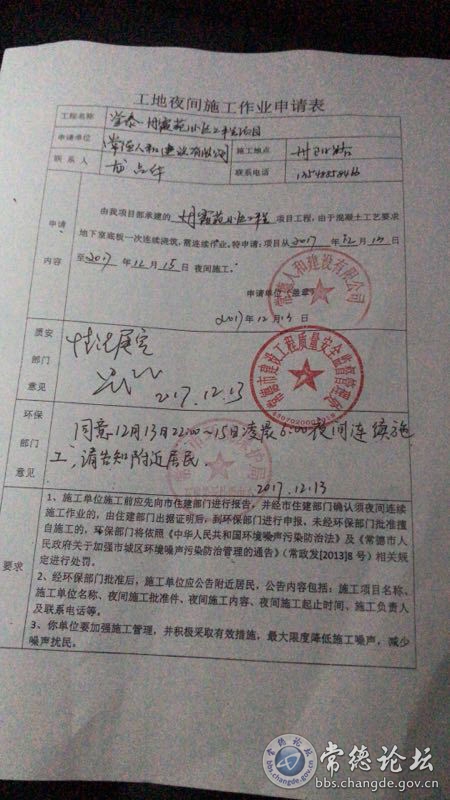 工地夜间施工作业申请表
工程名称
申请单位 常德人和建设有限公司 施工地点
联系人 联系电话
申请
内容
由我项目部承建的 丹霞苑小区工程 项目工程,由于混凝土工艺要求
地下室底板一次连续浇筑,需连续作业。特申请:项目从2017年12月13日
至2017年12月15日夜间施工。
申请单位(盖章)
2017年12月13日
常德人和建设有限公司
质安
部门
意见
情况属实
2017.12.13
常德市建设工程质量安全监督管理站
环保
部门
意见
同意12月13日22:00~15日凌晨6:00夜间连续施
工,请告知附近居民。
2017.12.13
要求
1、施工单位施工前应先向市住建部门进行报告,并经市住建部门确认须夜间连续
施工作业的,由住建部门出据证明后,到环保部门进行申报,未经环保部门批准擅
自施工的,环保部门将依照《中华人民共和国环境噪声污染防治法》及《常德市人
民政府关于加强市城区环境噪声污染防治管理的通告》(常政发[2013]8号)相关规
定进行处罚。
2、经环保部门批准后,施工单位应公告附近居民,公告内容包括:施工项目名称、
施工单位名称、夜间施工批准件、夜间施工内容、夜间施工起止时间、施工负责人
及联系电话等。
3、你单位要加强施工管理,并积极采取有效措施,最大限度降低施工噪声,减少
噪声扰民。
常德论坛
bbs.changde.gov.cn